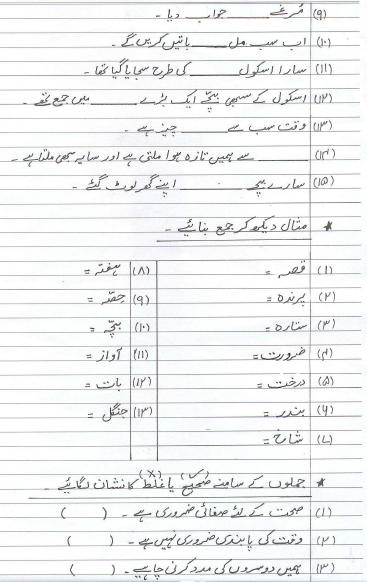 (۹) مُرغے ______ جواب دیا ۔
(۱۰) اب سب مل ______ باتیں کریں گے ۔
(۱۱) سارا اسکول ______ کی طرح سجایا گیا تھا ۔
(۱۲) اسکول کے سبھی بچّے ایک بڑے ______ میں جمع تھے ۔
(۱۳) وقت سب سے ______ چیز ہے ۔
(۱۴) ______ سے ہمیں تازہ ہوا ملتی ہے اور سایہ بھی ملتا ہے ۔
(۱۵) سارے بچّے ______ اپنے گھر لوٹ گئے ۔
* مثال دیکھ کر جمع بنائیے ۔
(۱) قصہ = (۸) ہفتہ =
(۲) پرندہ = (۹) حصّہ =
(۳) ستارہ = (۱۰) بچّہ =
(۴) ضرورت = (۱۱) آواز =
(۵) درخت = (۱۲) بات =
(۶) بندر = (۱۳) جنگل =
(۷) شاخ =
* جملوں کے سامنے صحیح (✓) یا غلط (X) کا نشان لگائیے ۔
(۱) صحت کے لئے صفائی ضروری ہے ۔ ( )
(۲) وقت کی پابندی ضروری نہیں ہے ۔ ( )
(۳) ہمیں دوسروں کی مدد کرنی چاہیے ۔ ( )